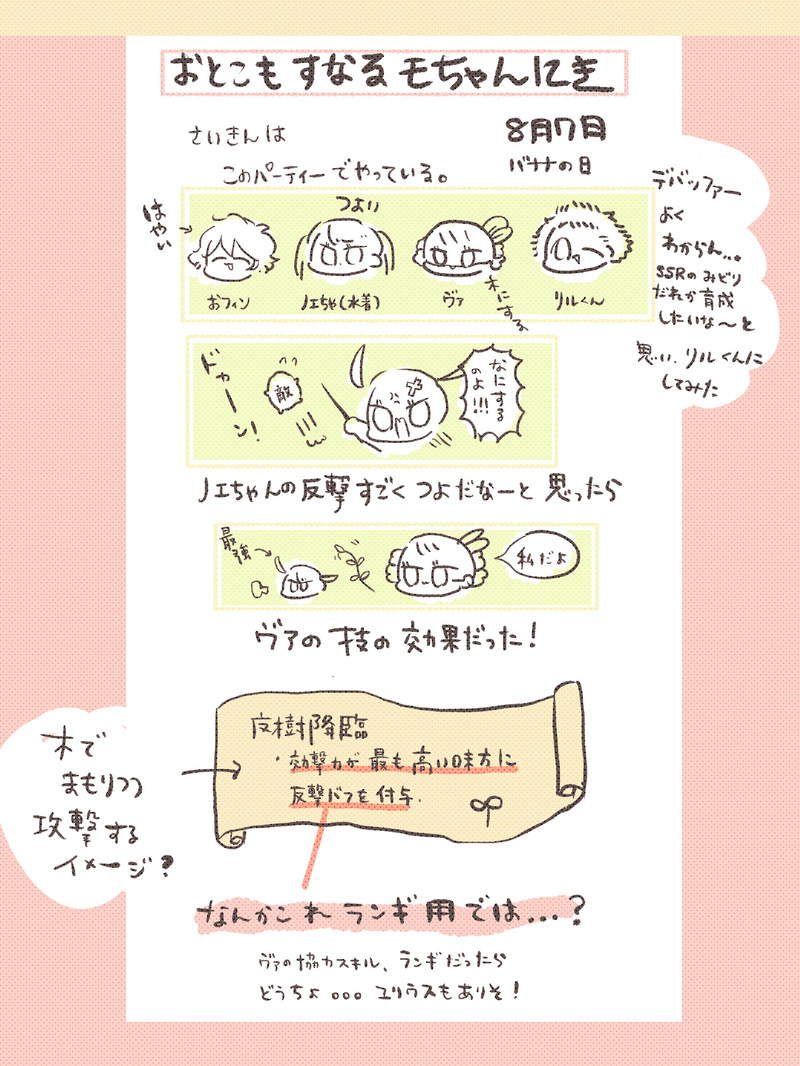 おとこもすなるモちゃんにき
8月7日
バナナの日
さいきんは
このパーティーでやっている。
はやい
つよい
おフィン
ノエちゃ(水着)
ヴァ
木にするよ
リルくん
デバッファー
よく
わからん...。
SSRのみどり
だれか育成
したいな〜と
思い、リルくんに
してみた
ドゥーン!
敵
なにする
のよ!!!
ノエちゃんの反撃すごくつよだなーと思ったら
最強
私だよ
ヴァの技の効果だった!
皮樹降臨
・効撃力が最も高い味方に
反撃バフを付与.
木で
まもりつつ
攻撃する
イメージ?
なんかこれランギ用では...?
ヴァの協力スキル、ランギだったら
どうちょ。。。ユリウスもありそ!